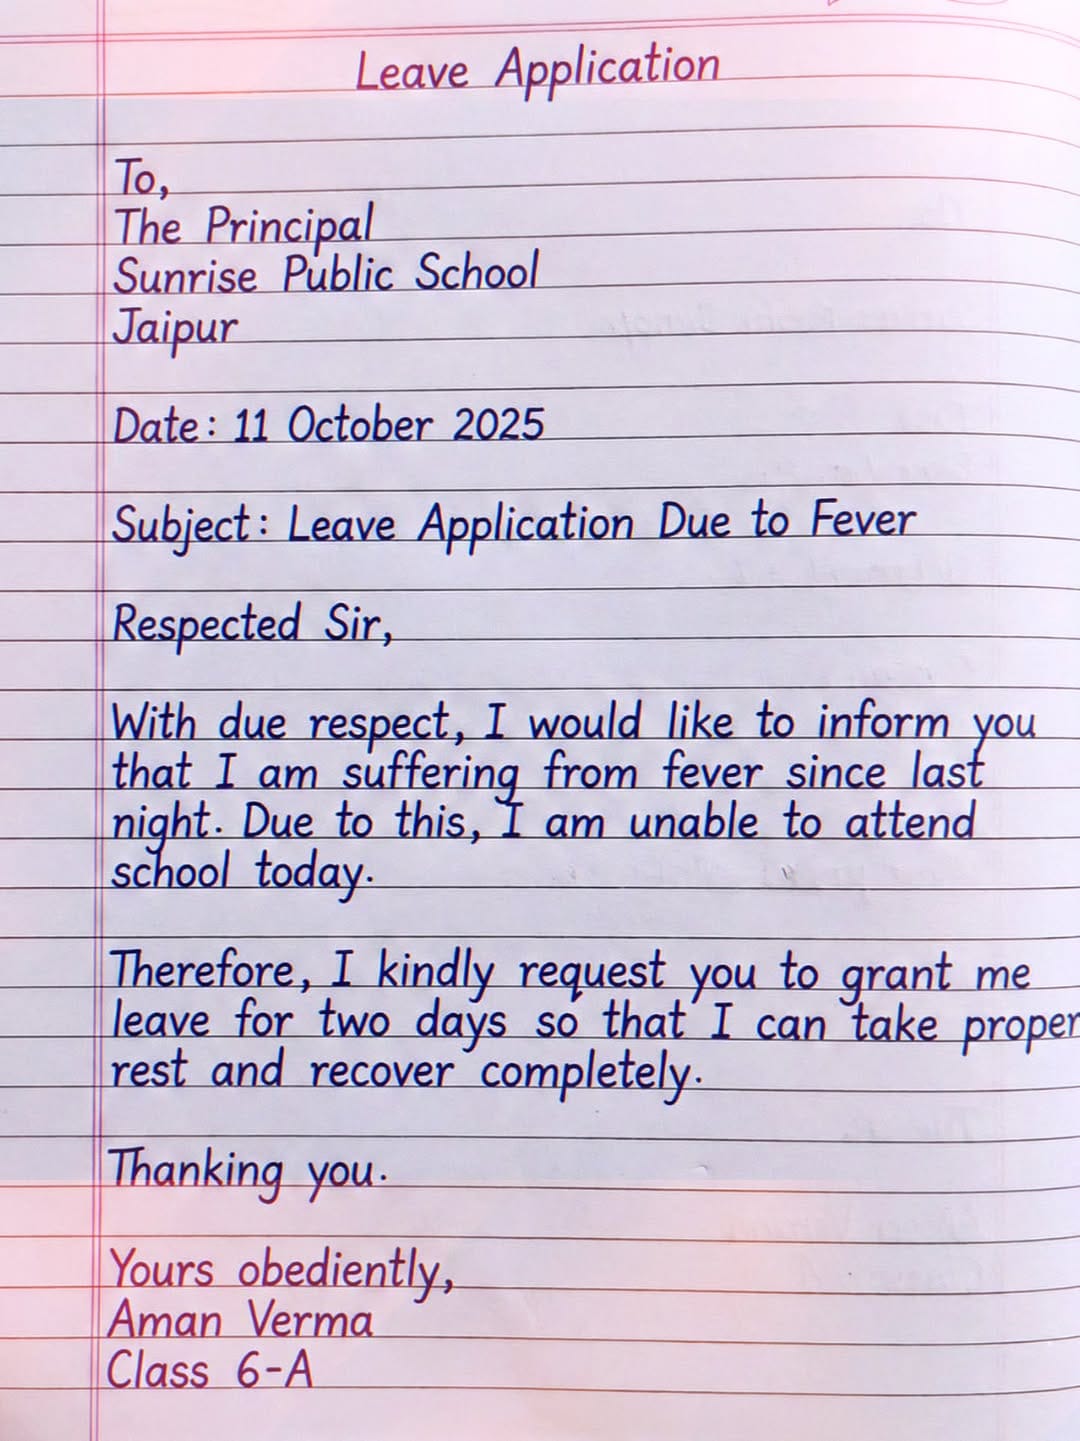 Leave Application
To,
The Principal
Sunrise Public School
Jaipur
Date: 11 October 2025
Subject: Leave Application Due to Fever
Respected Sir,
With due respect, I would like to inform you
that I am suffering from fever since last
night. Due to this, I am unable to attend
school today.
Therefore, I kindly request you to grant me
leave for two days so that I can take proper
rest and recover completely.
Thanking you.
Yours obediently,
Aman Verma
Class 6-A